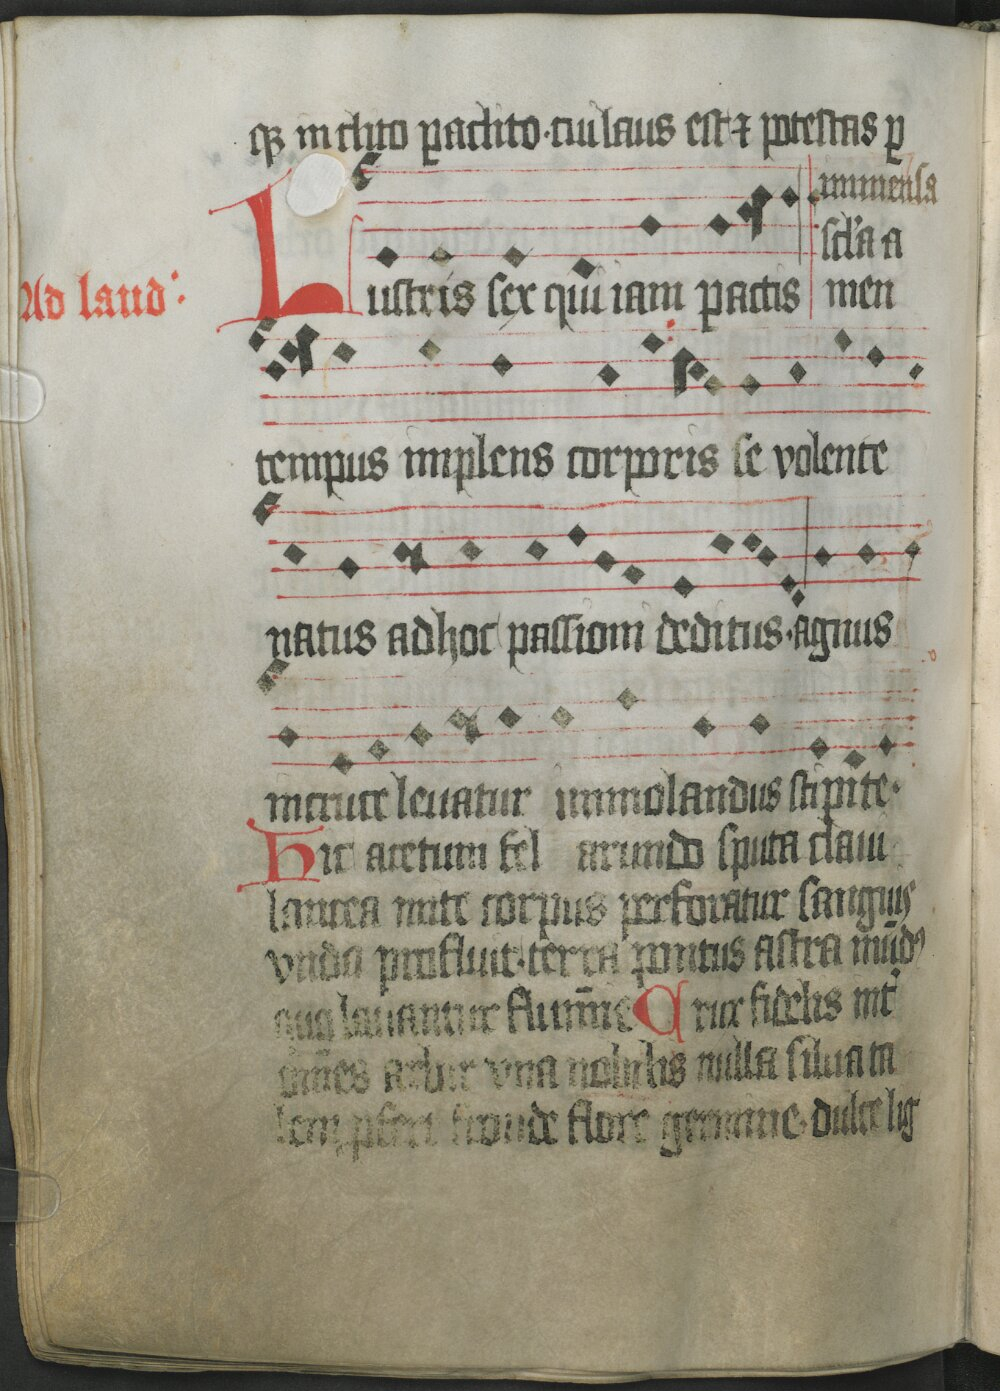 qꝫ inclito paclito·cui laus est ⁊ potestas p
immensa
scl'a a
Ad laud:
Lustris sex qui iam pactis men
tempus implens corporis se volente
natus ad hoc passioni deditus·agnus
in cruce leuatur immolandus stipite·
Hic acetum fel arundo sputa claui
lancea mite corpus perforatur sanguis
vnda profluit·terra pontus astra mūdꝰ
quo lauantur flumīe Crux fidelis int̉
om̄es arbor vna nobilis nulla silua ta
lem ꝓfert fronde flore germine·dulce lig